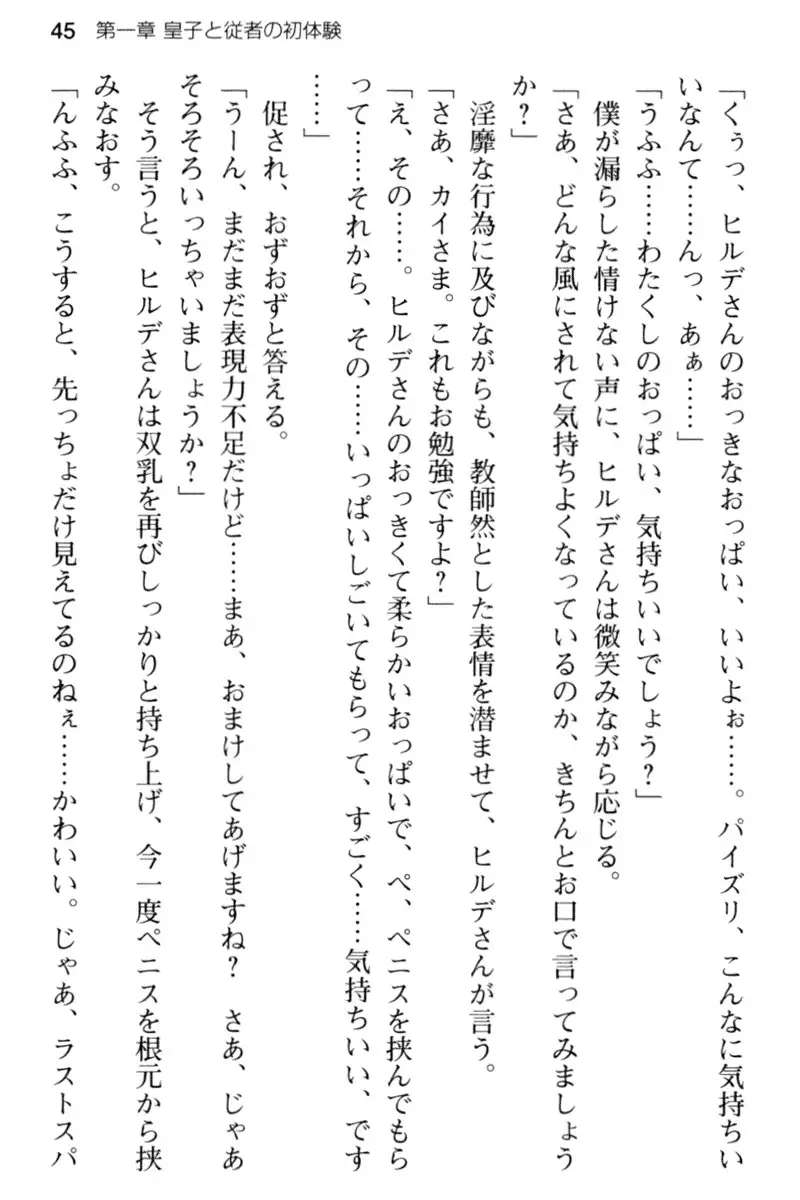 45 第一章 皇子と従者の初体験
「くぅっ、ヒルデさんのおっきなおっぱい、いいよぉ……。パイズリ、こんなに気持ちい
いなんて……んっ、あぁ……」
「うふふ……わたくしのおっぱい、気持ちいいでしょう？」
僕が漏らした情けない声に、ヒルデさんは微笑みながら応じる。
「さあ、どんな風にされて気持ちよくなっているのか、きちんとお口で言ってみましょう
か？」
淫靡な行為に及びながらも、教師然とした表情を潜ませて、ヒルデさんが言う。
「さあ、カイさま。これもお勉強ですよ？」
「え、その……。ヒルデさんのおっきくて柔らかいおっぱいで、ペ、ペニスを挟んでもら
って……それから、その……いっぱいしごいてもらって、すごく……気持ちいい、です
……」
促され、おずおずと答える。
「うーん、まだまだ表現力不足だけど……まあ、おまけしてあげますね？　さあ、じゃあ
そろそろいっちゃいましょうか？」
そう言うと、ヒルデさんは双乳を再びしっかりと持ち上げ、今一度ペニスを根元から挟
みなおす。
「んふふ、こうすると、先っちょだけ見えてるのねぇ……かわいい。じゃあ、ラストスパ